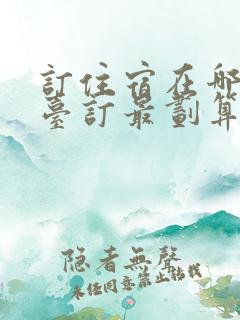 訂住宿在哪
臺訂最劃算
隐者無聲
未经同意禁止转载